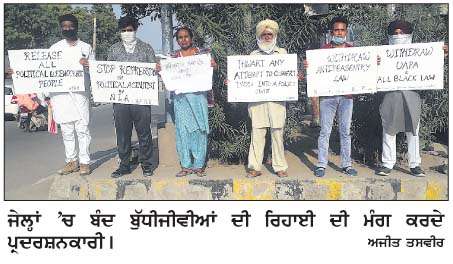 RELEASE
ALL
POLITICAL & DEMOCRATIC
PEOPLE
STOP REPRESSION
ON
POLITICAL ACTIVISTS
BY
N I A
THWART ANY
ATTEMPT TO CONVERT
INTO A POLICE
STATE
WITHDRAW
LAW
WITHDRAW
UAPA
ALL BLACK LAW
ਜੇਲ੍ਹਾਂ 'ਚ ਬੰਦ ਬੁੱਧੀਜੀਵੀਆਂ ਦੀ ਰਿਹਾਈ ਦੀ ਮੰਗ ਕਰਦੇ
ਪ੍ਰਦਰਸ਼ਨਕਾਰੀ। ਅਜੀਤ ਤਸਵੀਰ